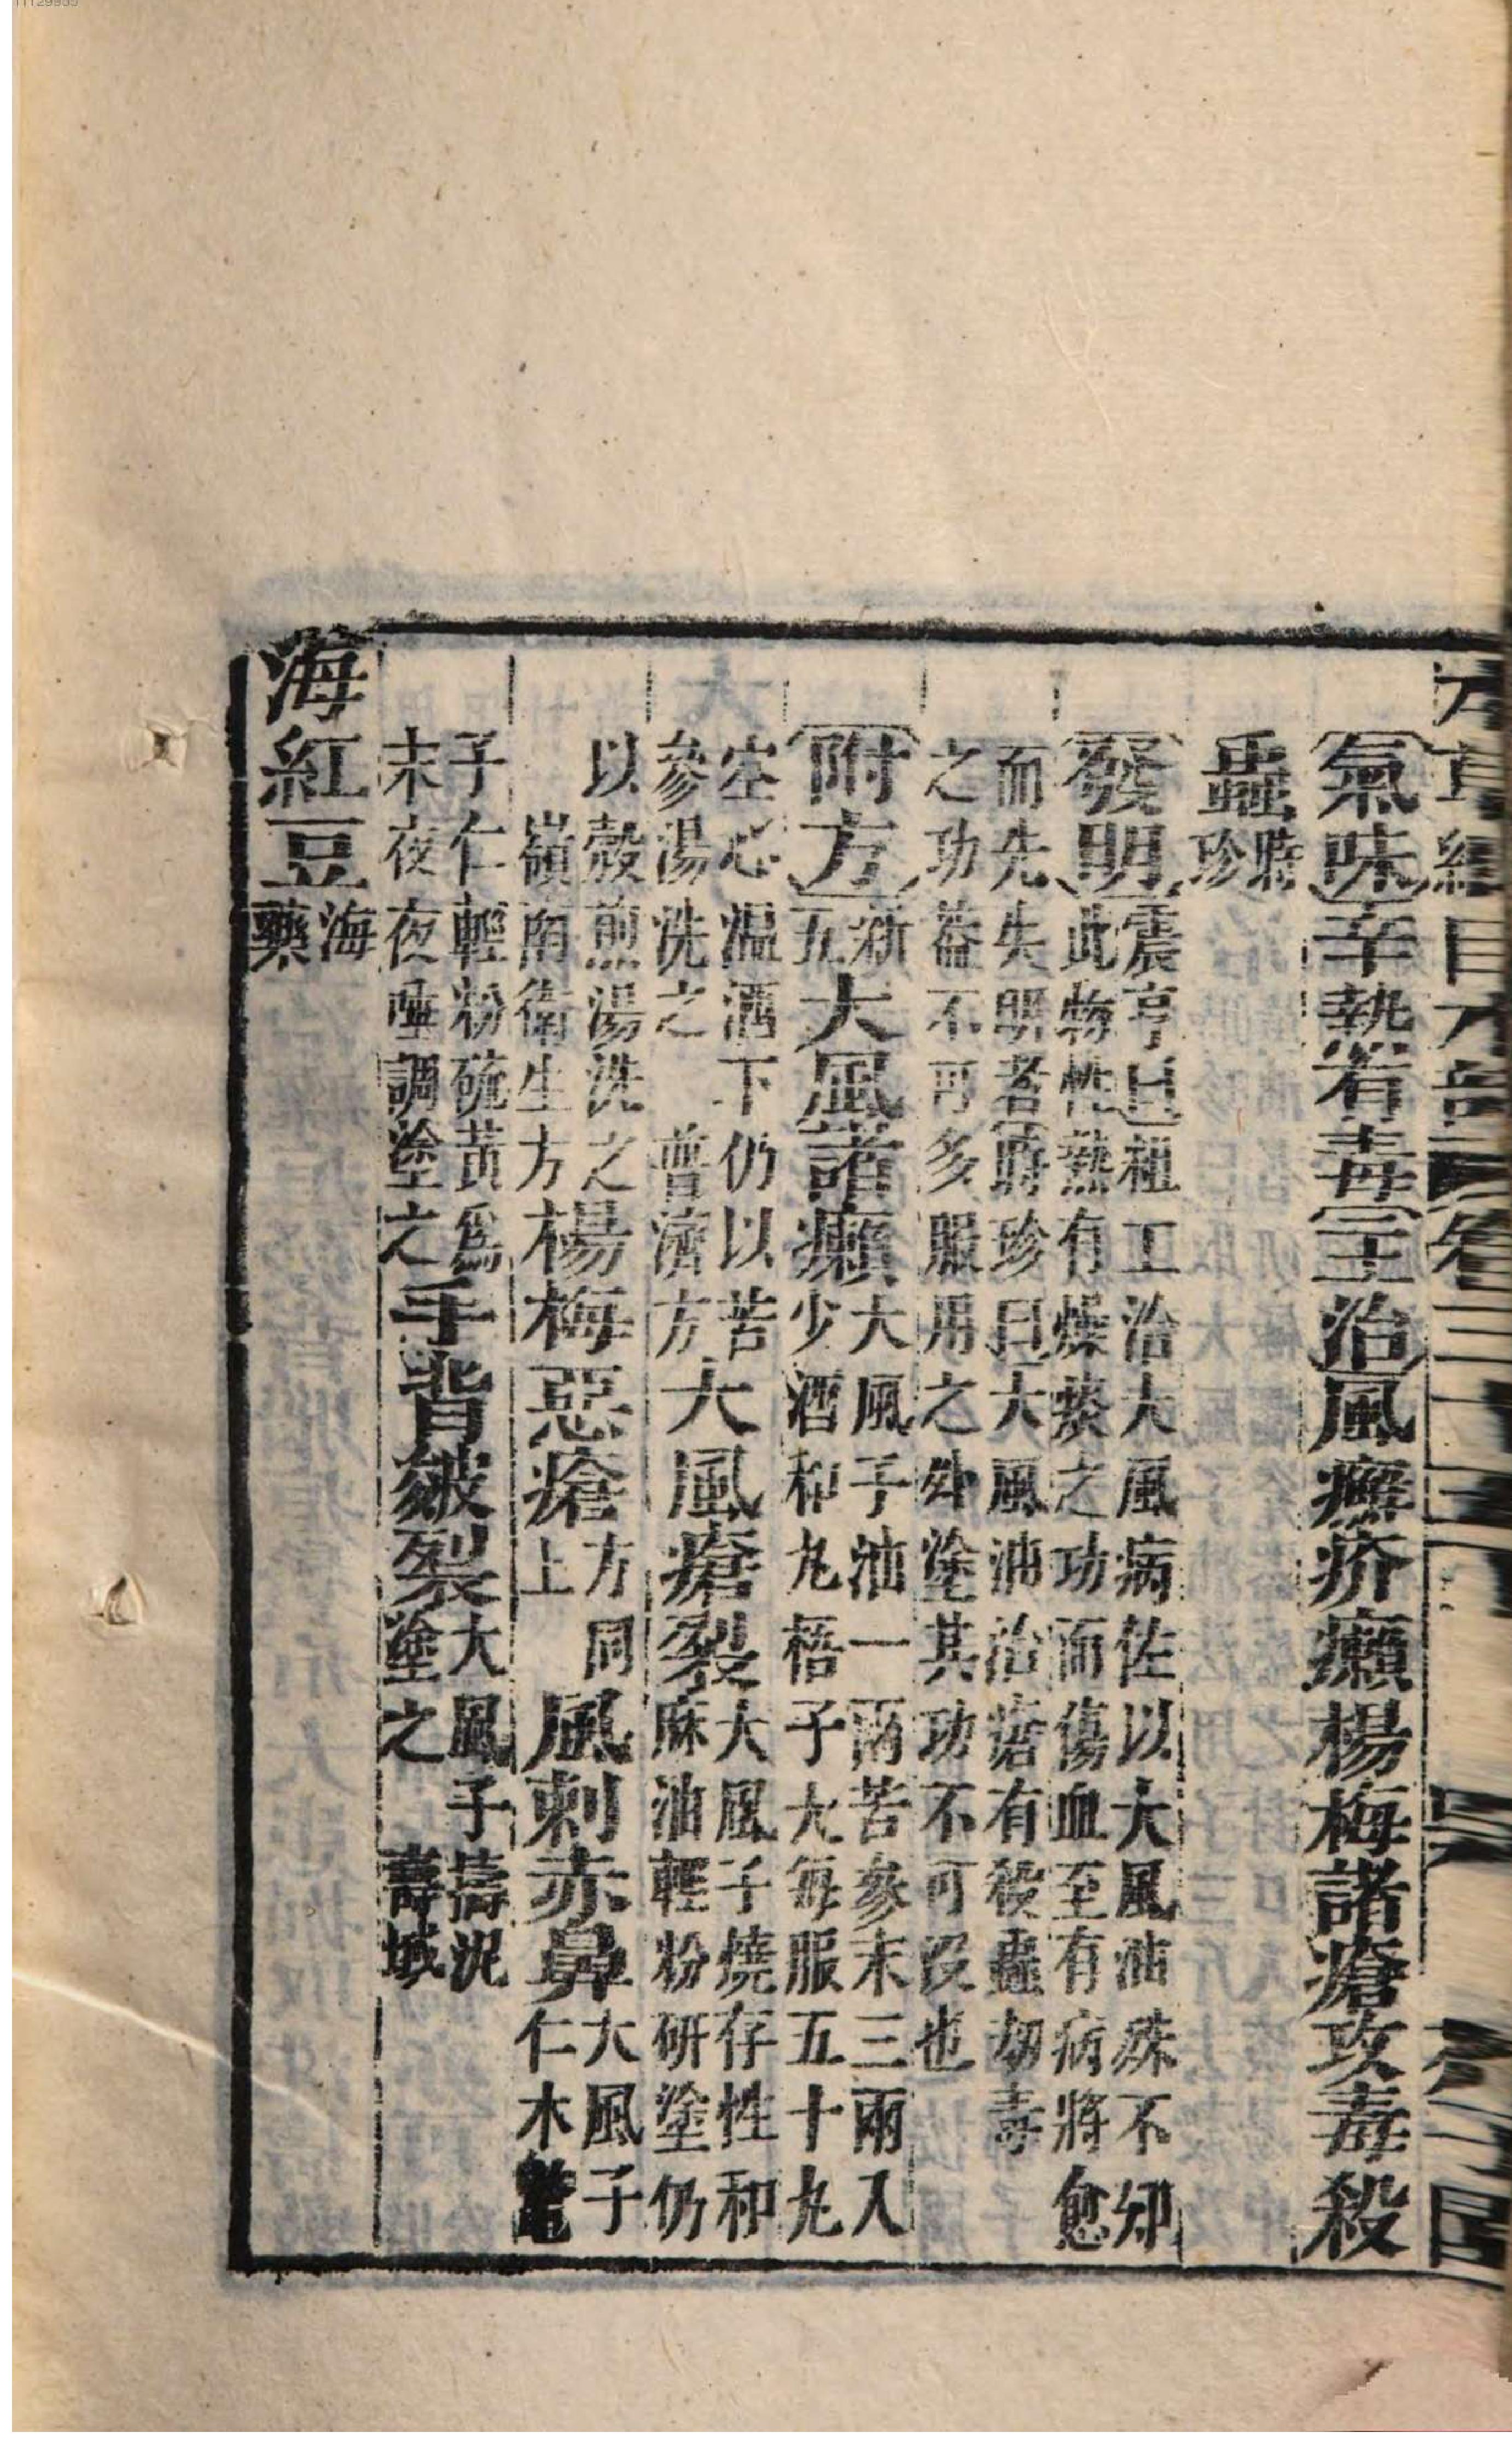 氣味辛熱有毒主治風癬疥癩楊梅諸瘡攻毒殺
蟲時珍
發明震亨曰粗工治大風病佐以大風油殊不知
此物性熱有燥痰之功而傷血至有病將愈
而先失明者時珍曰大風油治瘡有殺蟲劫毒
之功葢不可多服用之外塗其功不可沒也
附方新五大風諸癩大風子油一兩苦參末三兩入
少酒和丸梧子大每服五十丸
空心温酒下仍以苦
參湯洗之 普濟方大風瘡裂大風子燒存性和
麻油輕粉研塗仍
以殼煎湯洗之
嶺南衛生方楊梅惡瘡方同上風刺赤鼻大風子
仁木鼈
子仁輕粉硫黃爲
末夜夜唾調塗之手背皴裂大風子擣泥
塗之 壽域
海紅豆海藥